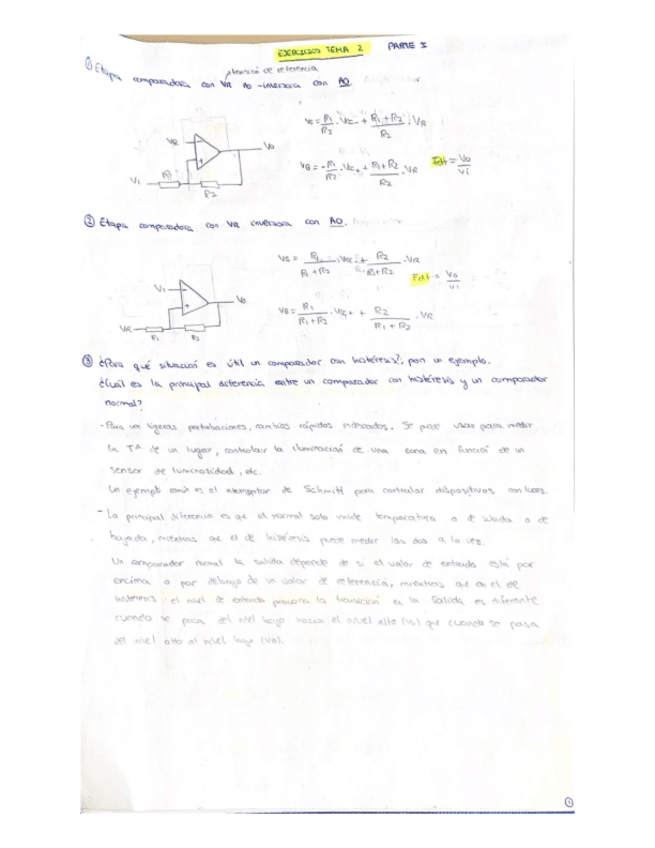 EJERCICIOS TEMA 2 PARTE I
tensión de referencia
① Etapa comparadora con VR no-inversora con AO.
VS = R1/R2 · Vcc- + R1+R2/R2 · VR
VR
V0
VB = -R1/R2 · Vcc+ + R1+R2/R2 · VR
Fdt = V0/Vi
Vi
R1
R2
② Etapa comparadora con VR inversora con AO.
VS = R1/R1+R2 · Vcc + R2/R1+R2 · VR
Vi
V0
Fdt = V0/Vi
VB = R1/R1+R2 · Vcc+ + R2/R1+R2 · VR
VR
R1
R2
③ ¿Para qué situación es útil un comparador con histéresis?, pon un ejemplo.
¿Cuál es la principal diferencia entre un comparador con histéresis y un comparador
normal?
- Para ligeras perturbaciones, cambios rápidos. Se puede usar para medir
la Tª de un lugar, controlar la iluminación de una zona en función de un
sensor de luminosidad, etc.
Un ejemplo común es el interruptor de Schmitt para controlar dispositivos con luces.
- La principal diferencia es que el normal solo mide temperatura o de subida o de
bajada, mientras que el de histéresis puede medir las dos a la vez.
Un comparador normal la salida depende de si el valor de entrada está por
encima o por debajo de un valor de referencia, mientras que en el de
histéresis el nivel de entrada la transición en la salida es diferente
cuando se pasa del nivel bajo hacia el nivel alto (VS) que cuando se pasa
del nivel alto al nivel bajo (VB).
1